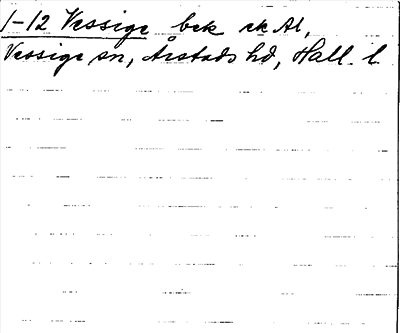 1-12 Vessige bek ek Al,
Vessige sn, Årstads hd, Hall. l